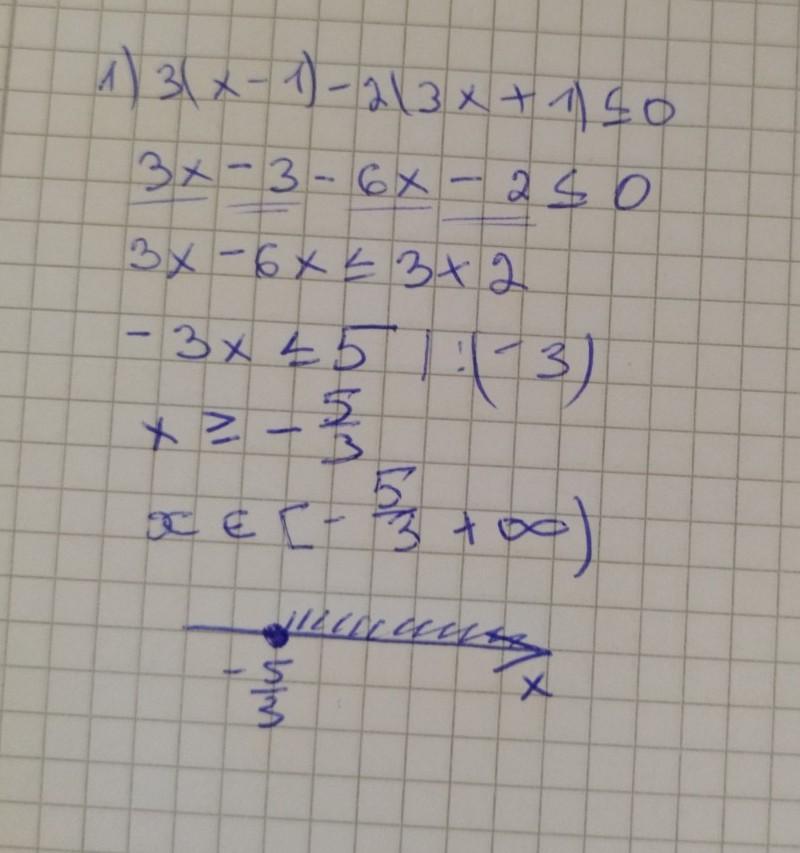 1) 3(x-1)-2(3x+1)≤0
3x-3-6x-2≤0
3x-6x≤3+2
-3x≤5 |:(-3)
x≥-5/3
x∈[-5/3 +∞)
-5/3
x